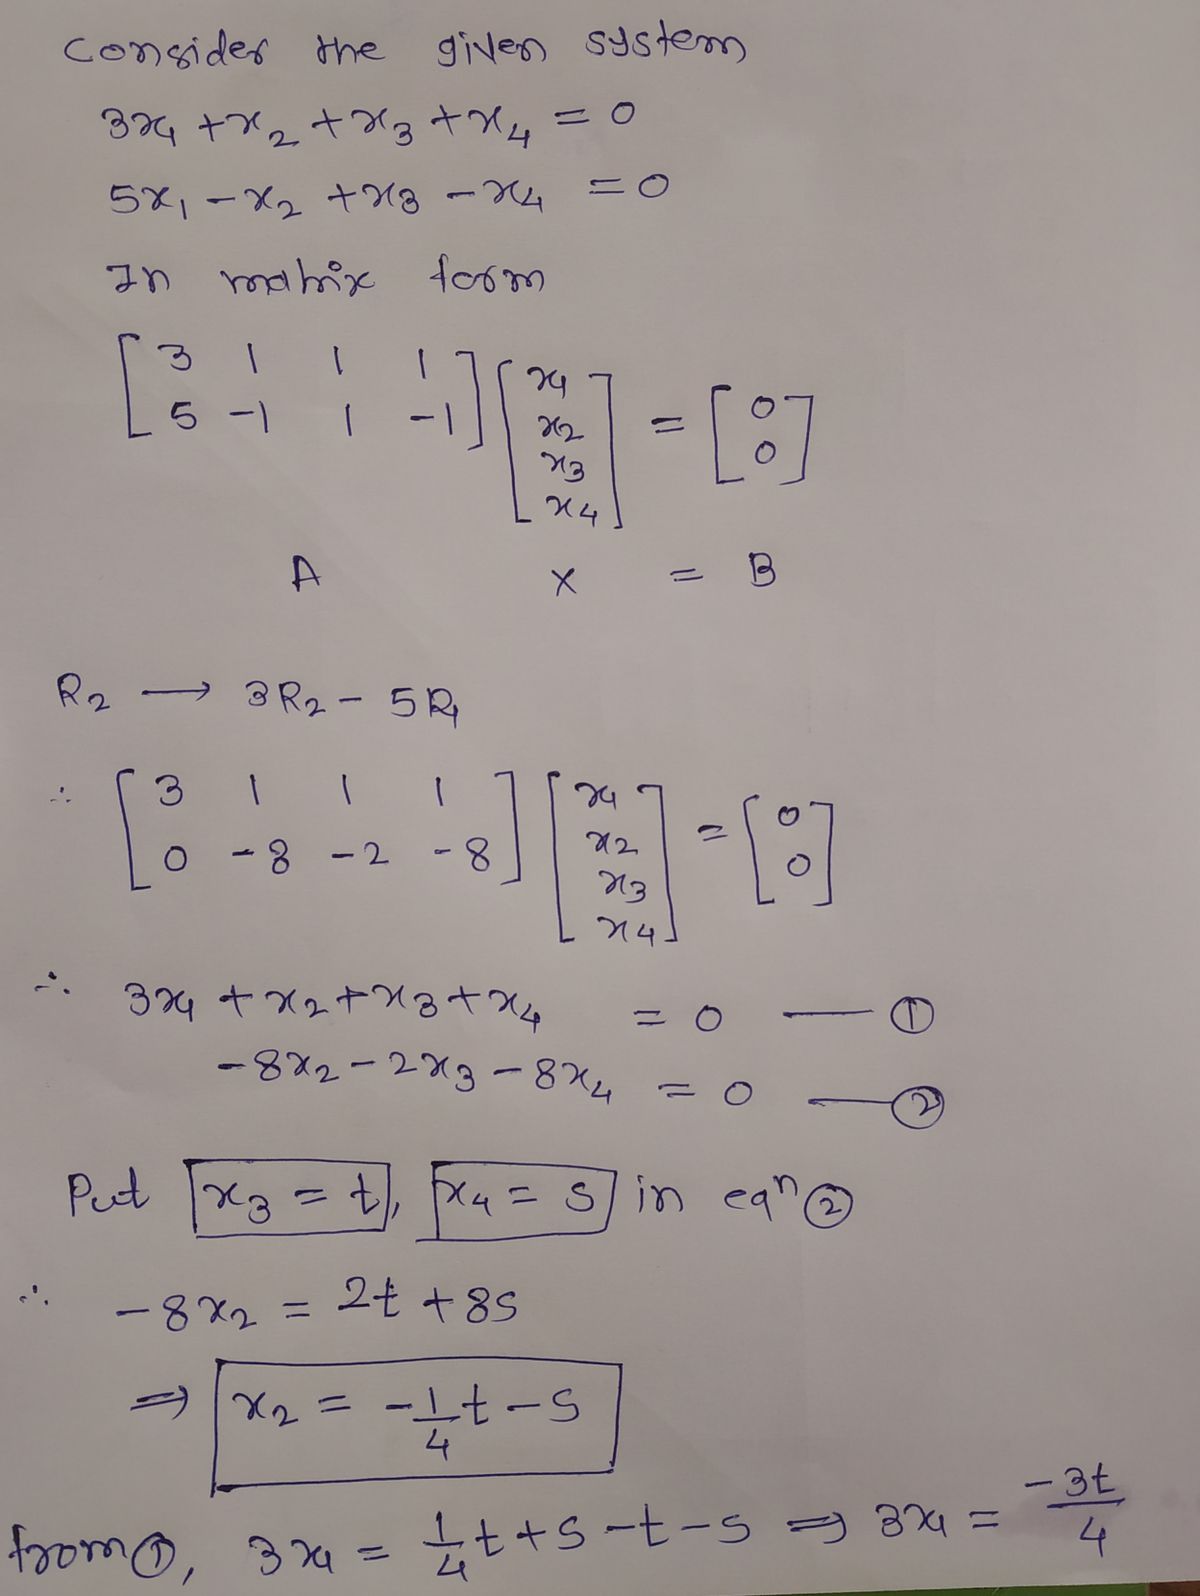 Consider the given system
3x₁ + x₂ + x₃ + x₄ = 0
5x₁ - x₂ + x₃ - x₄ = 0
In matrix form
[3 1 1 1; 5 -1 1 -1] [x₁; x₂; x₃; x₄] = [0; 0]
A X = B
R₂ → 3R₂ - 5R₁
∴ [3 1 1 1; 0 -8 -2 -8] [x₁; x₂; x₃; x₄] = [0; 0]
∴ 3x₁ + x₂ + x₃ + x₄ = 0 — ①
-8x₂ - 2x₃ - 8x₄ = 0 — ②
Put x₃ = t, x₄ = s in eqⁿ ②
∴ -8x₂ = 2t + 8s
⇒ x₂ = -1/4 t - s
from ①, 3x₁ = 1/4 t + s - t - s ⇒ 3x₁ = -3t/4